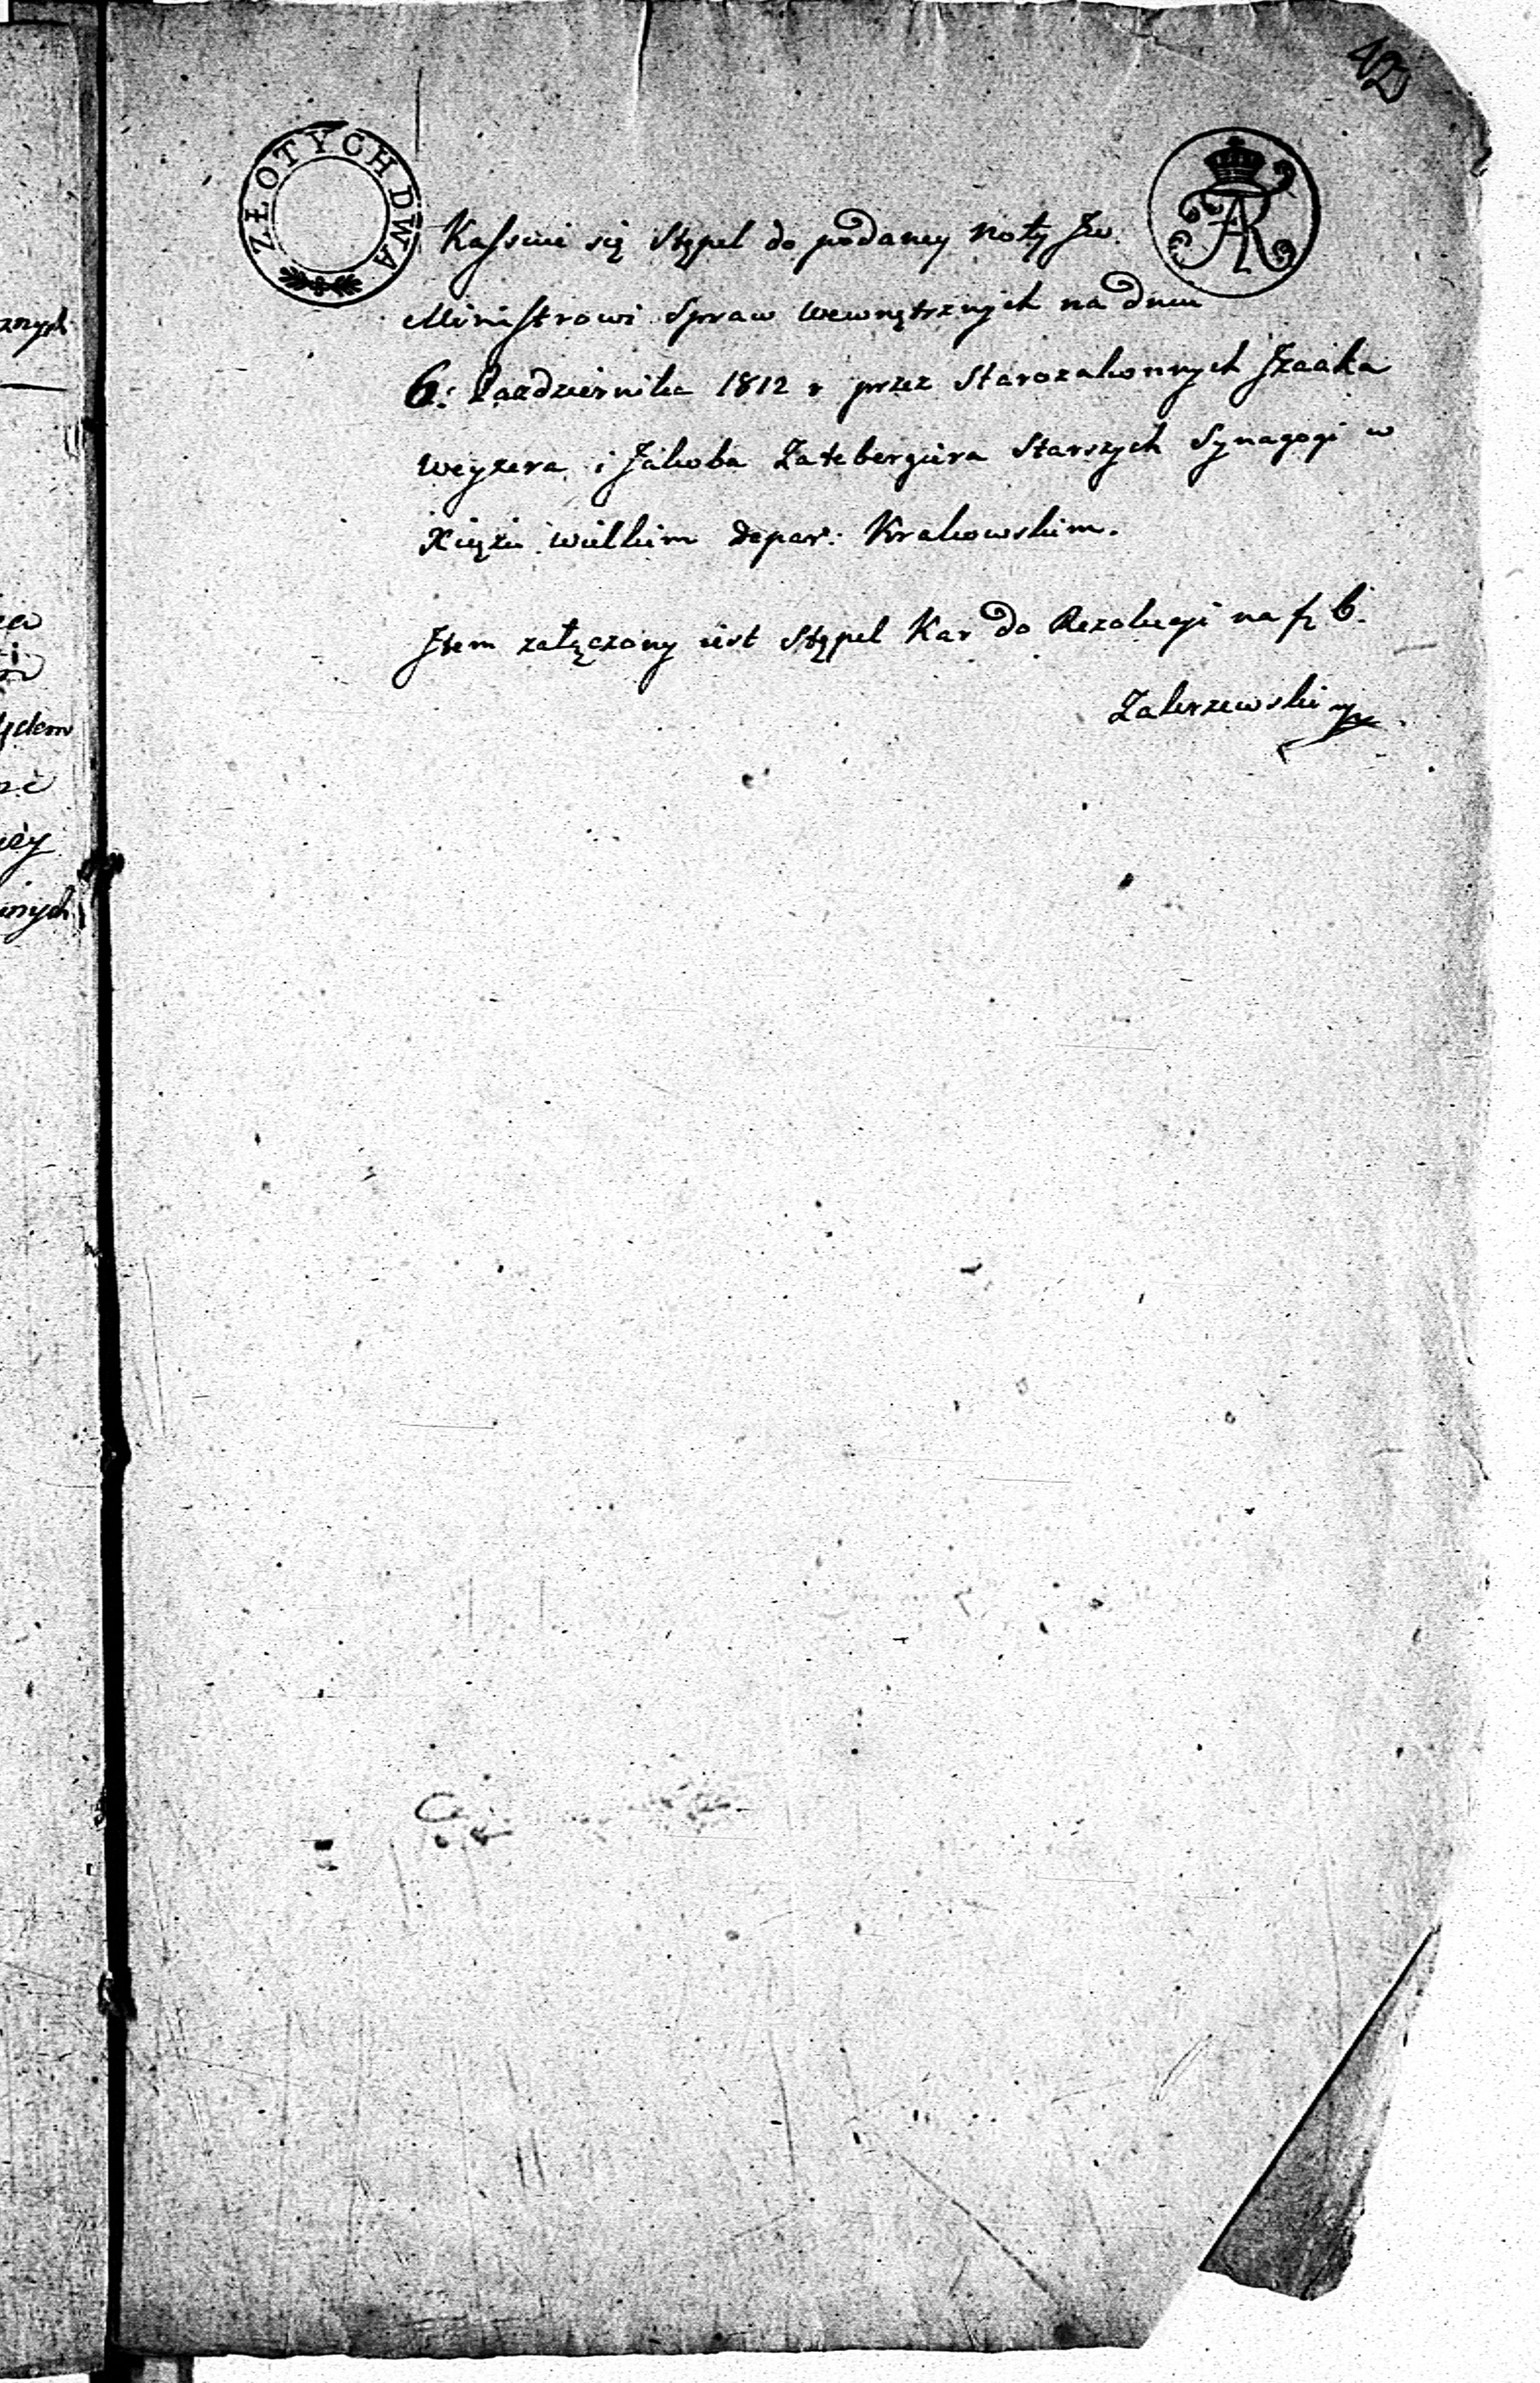 42
ZŁOTYCH DWA
Kassuie się Stępel do podaney Noty JW.
Ministrowi Spraw Wewnętrznych na dniu
6: Października 1812 r przez Starozakonnych Izaaka
Weyzera i Jakoba Zatebergiera Starszych Synagogi w
Xiążu wielkim depar: Krakowskim.
Item załączony iest Stępel Kar do Rezolucyi na f 6.
Zakrzewski
znych
ea
i
ędem
ney
nnych